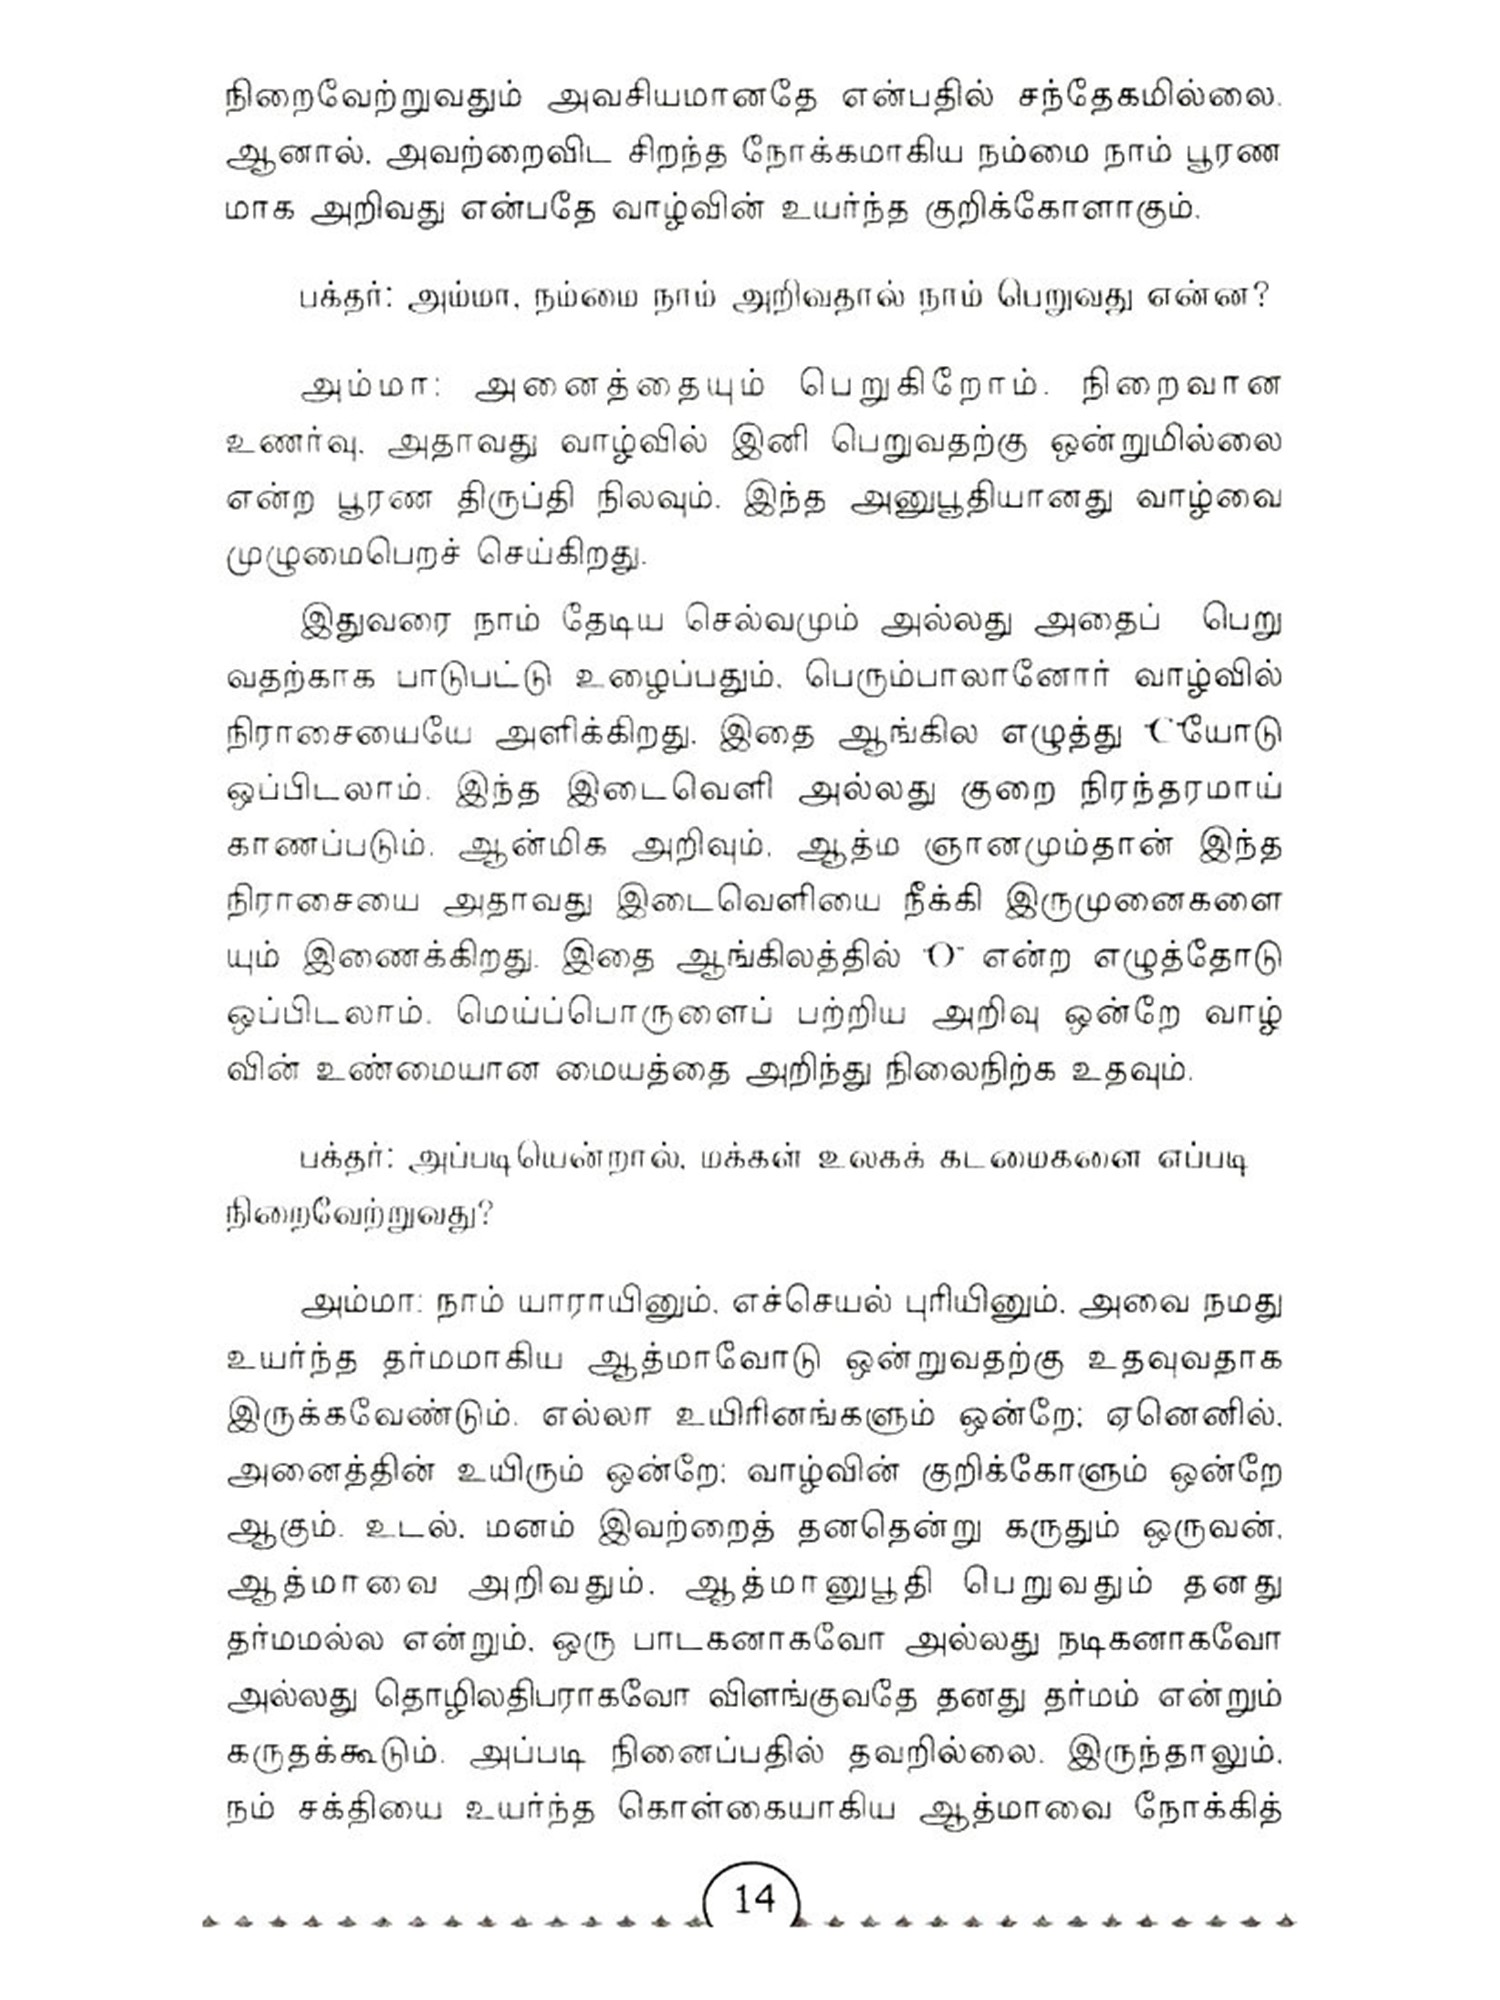 நிறைவேற்றுவதும் அவசியமானதே என்பதில் சந்தேகமில்லை.
ஆனால், அவற்றைவிட சிறந்த நோக்கமாகிய நம்மை நாம் பூரண
மாக அறிவது என்பதே வாழ்வின் உயர்ந்த குறிக்கோளாகும்.
பக்தர்: அம்மா, நம்மை நாம் அறிவதால் நாம் பெறுவது என்ன?
அம்மா: அனைத்தையும் பெறுகிறோம். நிறைவான
உணர்வு, அதாவது வாழ்வில் இனி பெறுவதற்கு ஒன்றுமில்லை
என்ற பூரண திருப்தி நிலவும். இந்த அனுபூதியானது வாழ்வை
முழுமைபெறச் செய்கிறது.
இதுவரை நாம் தேடிய செல்வமும் அல்லது அதைப் பெறு
வதற்காக பாடுபட்டு உழைப்பதும், பெரும்பாலானோர் வாழ்வில்
நிராசையையே அளிக்கிறது. இதை ஆங்கில எழுத்து "C"யோடு
ஒப்பிடலாம். இந்த இடைவெளி அல்லது குறை நிரந்தரமாய்
காணப்படும். ஆன்மிக அறிவும், ஆத்ம ஞானமும்தான் இந்த
நிராசையை அதாவது இடைவெளியை நீக்கி இருமுனைகளை
யும் இணைக்கிறது. இதை ஆங்கிலத்தில் "O" என்ற எழுத்தோடு
ஒப்பிடலாம். மெய்ப்பொருளைப் பற்றிய அறிவு ஒன்றே வாழ்
வின் உண்மையான மையத்தை அறிந்து நிலைநிற்க உதவும்.
பக்தர்: அப்படியென்றால், மக்கள் உலகக் கடமைகளை எப்படி
நிறைவேற்றுவது?
அம்மா: நாம் யாராயினும், எச்செயல் புரியினும், அவை நமது
உயர்ந்த தர்மமாகிய ஆத்மாவோடு ஒன்றுவதற்கு உதவுவதாக
இருக்கவேண்டும். எல்லா உயிரினங்களும் ஒன்றே; ஏனெனில்,
அனைத்தின் உயிரும் ஒன்றே; வாழ்வின் குறிக்கோளும் ஒன்றே
ஆகும். உடல், மனம் இவற்றைத் தனதென்று கருதும் ஒருவன்,
ஆத்மாவை அறிவதும், ஆத்மானுபூதி பெறுவதும் தனது
தர்மமல்ல என்றும், ஒரு பாடகனாகவோ அல்லது நடிகனாகவோ
அல்லது தொழிலதிபராகவோ விளங்குவதே தனது தர்மம் என்றும்
கருதக்கூடும். அப்படி நினைப்பதில் தவறில்லை. இருந்தாலும்,
நம் சக்தியை உயர்ந்த கொள்கையாகிய ஆத்மாவை நோக்கித்
14